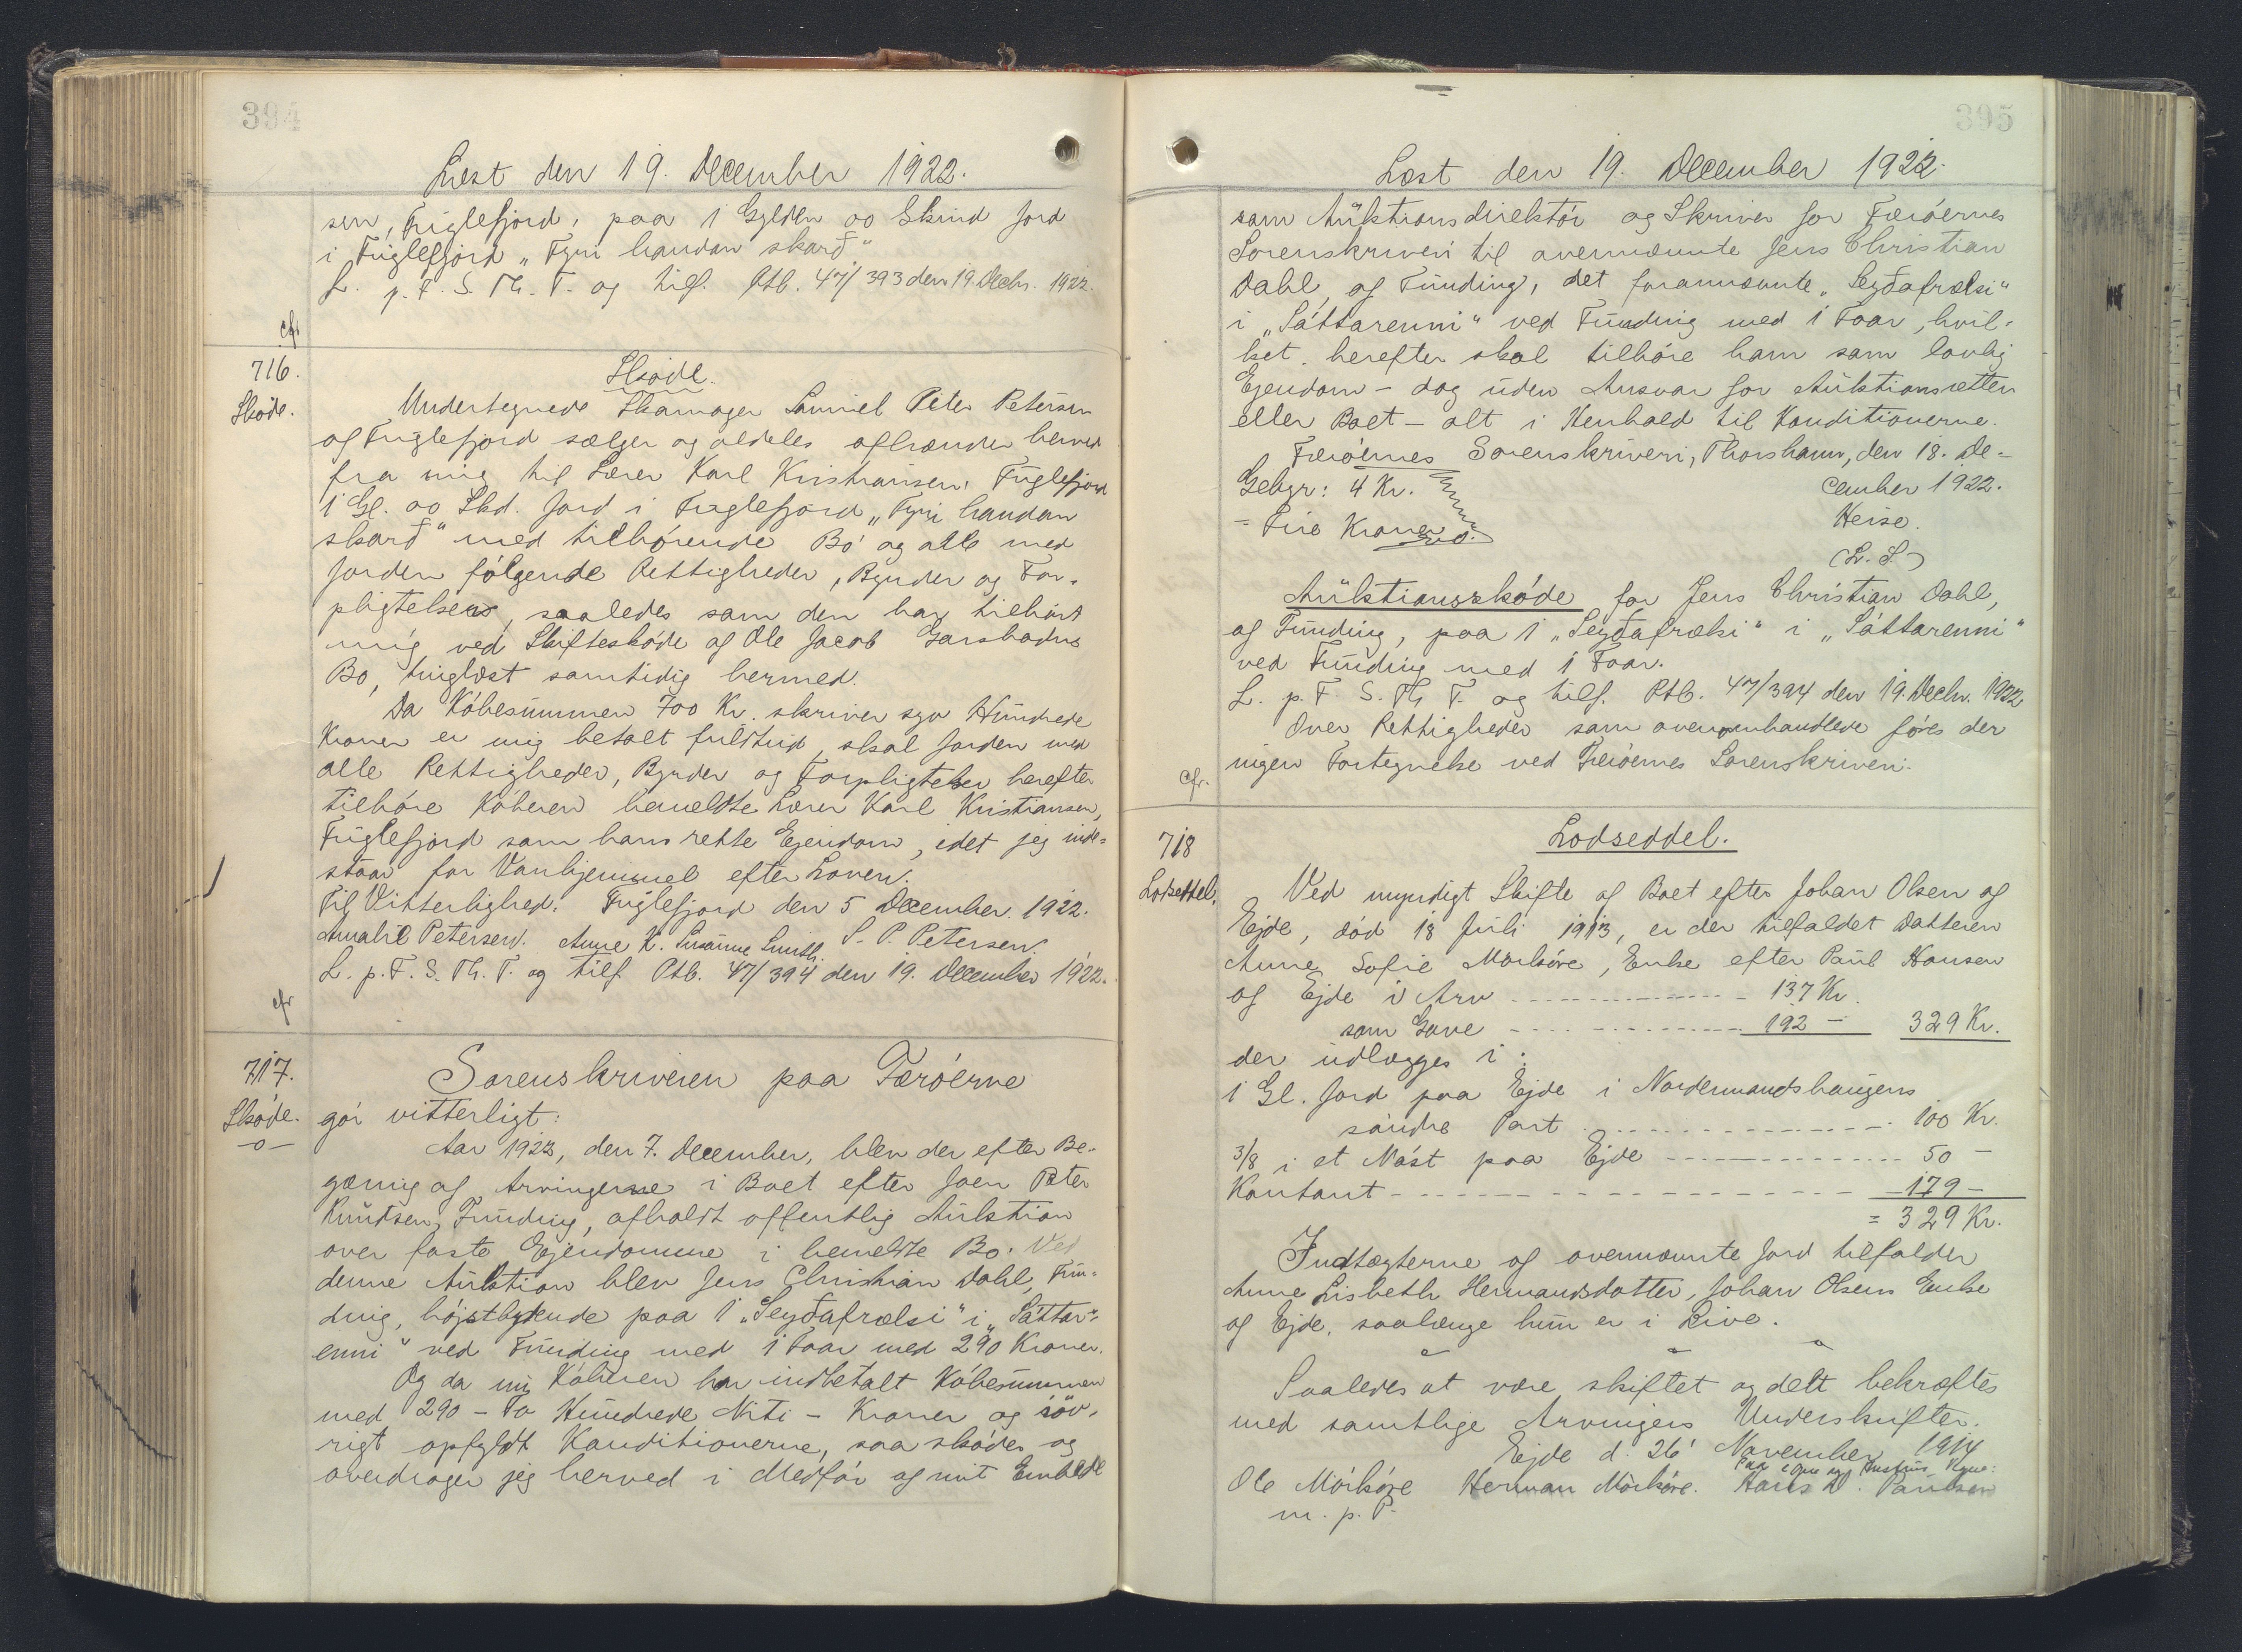 394
Læst den 19. December 1922.
sen, Fuglefjord, paa 1 Gylden 00 Skind Jord
i Fuglefjord „Fyri handan skarð“
L. p. F. S. Th. T. og tilf. Ptb. 47/393 den 19. Decbr. 1922.
cfr
716.
Skøde.
Skøde.
Undertegnede Skomager Samuel Peter Petersen
af Fuglefjord sælger og aldeles afhænder herved
fra mig til Lærer Karl Kristiansen, Fuglefjord
1 Gl. 00 Skd. Jord i Fuglefjord „Fyri handan
skarð“ med tilhørende Bø og alle med
Jorden følgende Rettigheder, Byrder og For-
pligtelser, saaledes som den har tilhørt
mig ved Skifteskøde af Ole Jacob
Bo, tinglæst samtidig hermed.
Da Købesummen 700 Kr. skriver syv Hundrede
Kroner er mig betalt fuldtud, skal Jorden med
alle Rettigheder, Byrder og Forpligtelser herefter
tilhøre Køberen bemeldte Lærer Karl Kristiansen,
Fuglefjord som hans rette Ejendom, idet jeg inde-
staar for Vanhjemmel efter Loven.
Til Vitterlighed: Fuglefjord den 5 December 1922.
Amalie Petersen. Anne K. Susanne Smith. S. P. Petersen
L. p. F. S. Th. T. og tilf. Ptb. 47/394 den 19. December 1922.
cfr
717.
Skøde.
-o-
Sorenskriveren paa Færøerne
gør vitterligt:
Aar 1922, den 7. December, blev der efter Be-
gæring af Arvingerne i Boet efter Joen Peter
Knudsen, Funding, afholdt offentlig Auktion
over faste Ejendomme i bemeldte Bo. Ved
denne Auktion blev Jens Christian Dahl, Fun-
ding, højstbydende paa 1 „Seyðafrælsi“ i „Sáttar-
enni“ ved Funding med 1 Faar med 290 Kroner.
Og da nu Køberen har indbetalt Købesummen
med 290 - To Hundrede Niti - Kroner og iøv-
rigt opfyldt Konditionerne, saa skøder og
overdrager jeg herved i Medfør af mit Embede
395
Læst den 19. December 1922.
som Auktionsdirektør og Skriver for Færøernes
Sorenskriveri til ovennævnte Jens Christian
Dahl, af Funding, det forannævnte „Seyðafrælsi“
i „Sáttarenni“ ved Funding med 1 Faar, hvil-
ket herefter skal tilhøre ham som lovlig
Ejendom - dog uden Ansvar for Auktionsretten
eller Boet - alt i Henhold til Konditionerne.
Færøernes Sorenskriveri, Thorshavn, den 18. De-
cember 1922.
Gebyr: 4 Kr.
= Fire Kroner
Heise.
(L. S.)
Auktionsskøde for Jens Christian Dahl,
af Funding, paa 1 „Seyðafrælsi“ i „Sáttarenni“
ved Funding med 1 Faar.
L. p. F. S. Th T. og tilf. Ptb. 47/394 den 19. Decbr. 1922
Over Rettigheder som ovenomhandlede føres der
ingen Fortegnelse ved Færøernes Sorenskriveri.
cfr.
718
Lodseddel.
Lodseddel.
Ved myndigt Skifte af Boet efter Johan Olsen af
Ejde, død 18 Juli 1913, er der tilfaldet Datteren
Anne Sofie Mørkøre, Enke efter Paul Hansen
af Ejde i Arv 137 Kr.
som Gave 192 - 329 Kr.
der udlægges i:
1 Gl. Jord paa Ejde i Nordermandshaugens
søndre Part 100 Kr.
3/8 i et Nøst paa Ejde 50 -
Kontant 179 -
= 329 Kr.
Indtægterne af ovennævnte Jord tilfalder
Anne Lisbeth Hermansdatter, Johan Olsens Enke
af Ejde, saalænge hun er i Live.
Saaledes at være skiftet og delt bekræftes
med samtlige Arvingers Underskrifter.
Ejde d. 26' November 1914
Paa egne og Hustrus Vegne:
Ole Mørkøre Herman Mørkøre. Hans D. Paulsen
m. p. P.